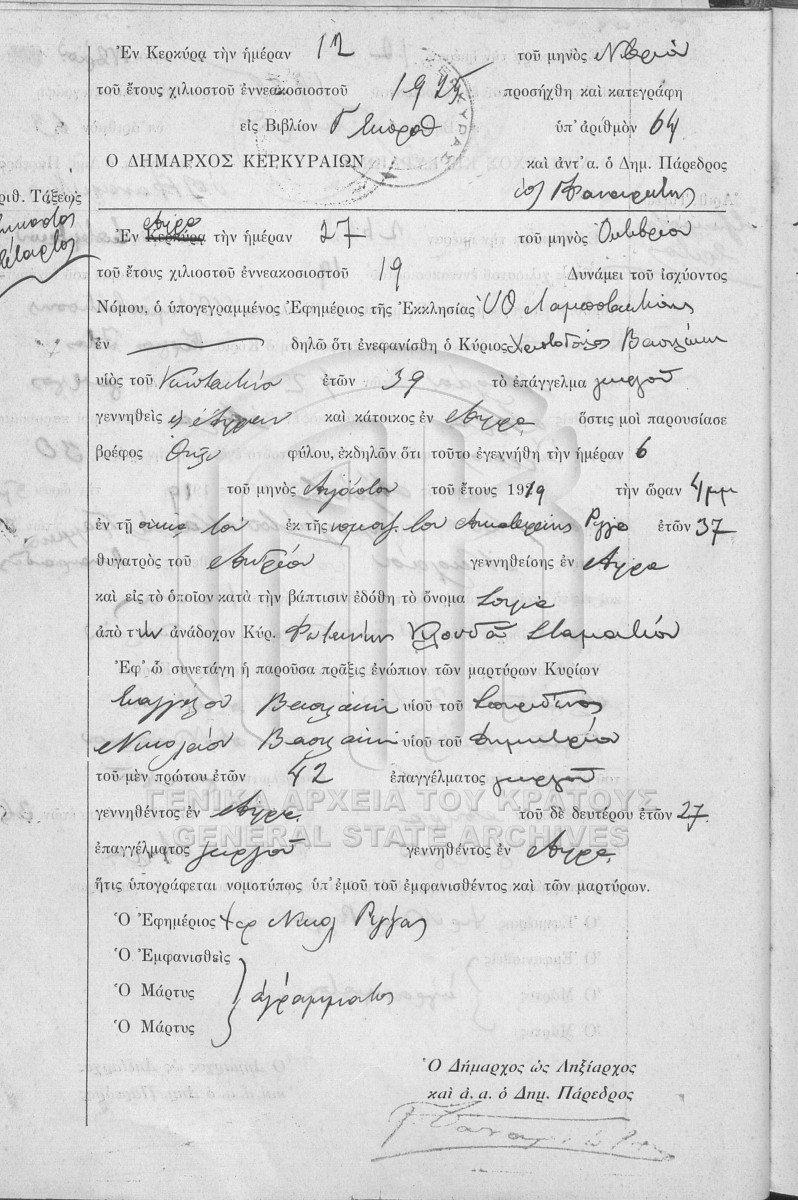 Ἐν Κερκύρᾳ τὴν ἡμέραν 12 τοῦ μηνὸς Νβρίου
τοῦ ἔτους χιλιοστοῦ ἐννεακοσιοστοῦ 1925 προσήχθη καὶ κατεγράφη
εἰς Βιβλίον ὑπ' ἀριθμὸν 64
Ο ΔΗΜΑΡΧΟΣ ΚΕΡΚΥΡΑΙΩΝ καὶ ἀντ' α. ὁ Δημ. Πάρεδρος
ριθ. Τάξεως
Ἐν Κερκύρᾳ τὴν ἡμέραν 27 τοῦ μηνὸς Ὀκτωβρίου
τοῦ ἔτους χιλιοστοῦ ἐννεακοσιοστοῦ 19 Δυνάμει τοῦ ἰσχύοντος
Νόμου, ὁ ὑπογεγραμμένος Ἐφημέριος τῆς Ἐκκλησίας
ἐν δηλῶ ὅτι ἐνεφανίσθη ὁ Κύριος Βασιλάκη
υἱὸς τοῦ Κωνσταντίνου ἐτῶν 39 τὸ ἐπάγγελμα γεωργοῦ
γεννηθεὶς καὶ κάτοικος ἐν ὅστις μοὶ παρουσίασε
βρέφος Θῆλυ φύλου, ἐκδηλῶν ὅτι τοῦτο ἐγεννήθη τὴν ἡμέραν 6
τοῦ μηνὸς Αὐγούστου τοῦ ἔτους 1919 τὴν ὥραν 4 μμ
ἐν τῇ οἰκίᾳ του ἐκ τῆς νομίμ. του Αἰκατερίνης Ρίγγα ἐτῶν 37
θυγατρὸς τοῦ Ἀνδρέου γεννηθείσης ἐν
καὶ εἰς τὸ ὁποῖον κατὰ τὴν βάπτισιν ἐδόθη τὸ ὄνομα Σοφία
ἀπὸ τὴν ἀνάδοχον Κύρ. Φωτεινῆς Σταματίου
Ἐφ' ᾧ συνετάγη ἡ παροῦσα πρᾶξις ἐνώπιον τῶν μαρτύρων Κυρίων
Εὐαγγέλου Βασιλάκη υἱοῦ τοῦ Σπυρίδωνος
Νικολάου Βασιλάκη υἱοῦ τοῦ Δημητρίου
τοῦ μὲν πρώτου ἐτῶν 42 ἐπαγγέλματος γεωργοῦ
ΓΕΝΙΚΑ ΑΡΧΕΙΑ ΤΟΥ ΚΡΑΤΟΥΣ
γεννηθέντος ἐν τοῦ δὲ δευτέρου ἐτῶν 27.
GENERAL STATE ARCHIVES
ἐπαγγέλματος γεωργοῦ γεννηθέντος ἐν
ἥτις ὑπογράφεται νομοτύπως ὑπ' ἐμοῦ τοῦ ἐμφανισθέντος καὶ τῶν μαρτύρων.
Ὁ Ἐφημέριος Νικολ Ρίγγας
Ὁ Ἐμφανισθεὶς
Ὁ Μάρτυς ἀγράμματος
Ὁ Μάρτυς
Ὁ Δήμαρχος ὡς Ληξίαρχος
καὶ ἀ. α. ὁ Δημ. Πάρεδρος